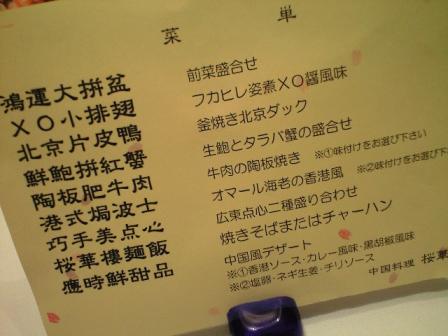 菜 単
鴻運大拼盆 前菜盛合せ
XO小排翅 フカヒレ姿煮XO醤風味
北京片皮鴨 釜焼き北京ダック
鮮鮑拼紅蟹 生鮑とタラバ蟹の盛合せ
陶板肥牛肉 牛肉の陶板焼き ※①味付けをお選び下さい
港式焗波士 オマール海老の香港風 ※②味付けをお選び下さい
巧手美点心 広東点心二種盛り合わせ
桜華楼麺飯 焼きそばまたはチャーハン
應時鮮甜品 中国風デザート
※①香港ソース・カレー風味・黒胡椒風味
※②塩豉・ネギ生姜・チリソース
中国料理 桜